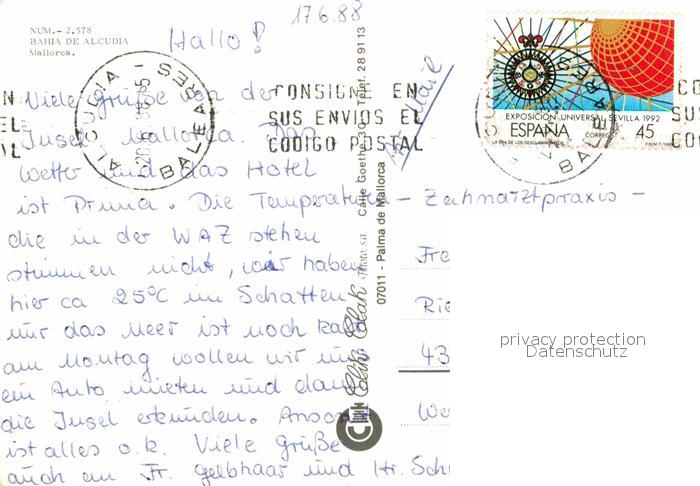 17.6.88
NUM.- 2,578
BAHIA DE ALCUDIA
Mallorca.
Hallo!
Viele Grüße von der
Insel Mallorca. Das
Wetter und das Hotel
ist Prima. Die Temperaturen
die in der WAZ stehen
stimmen nicht, wir haben
hier ca 25°C im Schatten
nur das Meer ist noch kalt
am Montag wollen wir uns
ein Auto mieten und dann
die Insel erkunden. Anson
ist alles o.k. Viele Grüße
auch an Fr. Gelbhaar und Hr. Sch
ALCUDIA - BALEARES
CONSIGNE EN
SUS ENVIOS EL
CODIGO POSTAL
Click Clak Photo s.a. Calle Goethe 30 Telef. 28 91 13
07011 - Palma de Mallorca
Air Mail
EXPOSICION UNIVERSAL SEVILLA 1992
ESPAÑA CORREOS 45
LA ERA DE LOS DESCUBRIMIENTOS
BALEARES
- Zahnarztpraxis -
Fre
Rie
43
We
privacy protection
Datenschutz